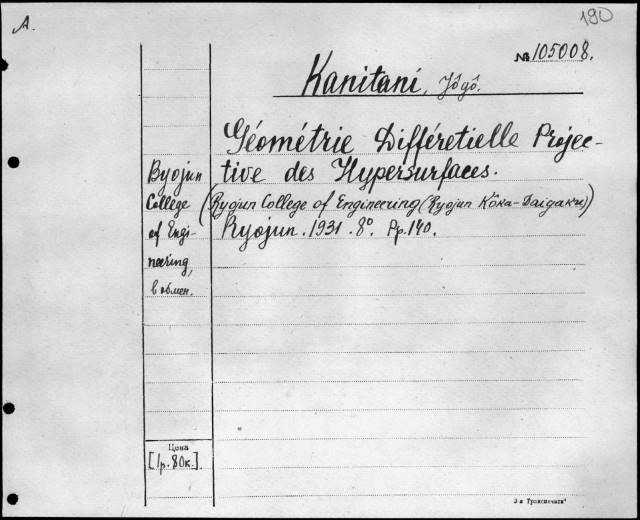 A.
190
№ 105008.
Kanitani, Jôgô.
Géométrie Différetielle Projec-
tive des Hypersurfaces.
(Ryojun College of Engineering (Ryojun Kôka-Daigaku)
Ryojun. 1931. 8°. Pp. 140.
Byojun
College
of Engi-
neering,
в обмен.
Цена
[1р. 80к.].